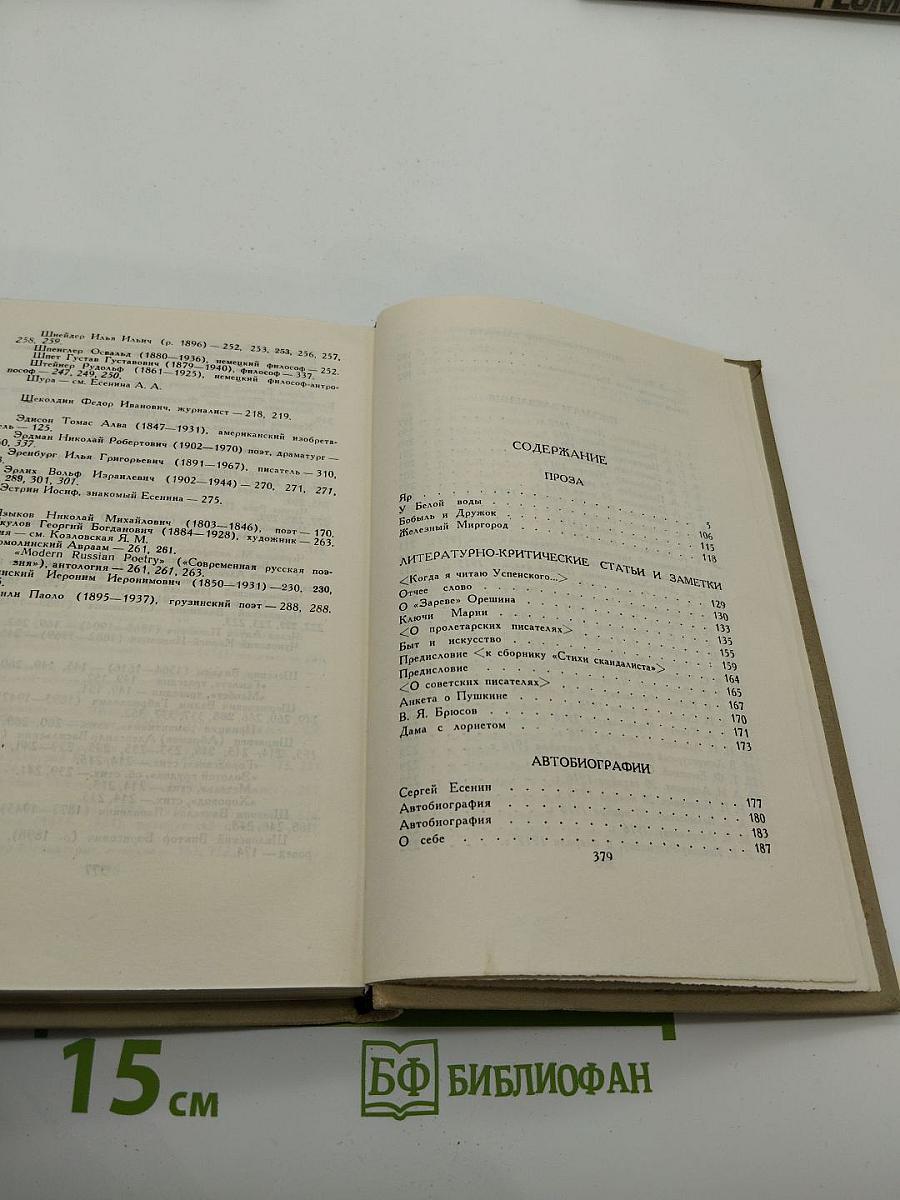 Шнейдер Илья Ильич (р. 1896) — 252, 253, 253, 256, 257,
258, 259.
Шпенглер Освальд (1880—1936), немецкий философ — 252.
Шпет Густав Густавович (1879—1940), философ — 337.
Штейнер Рудольф (1861—1925), немецкий философ-антро-
пософ — 247, 249, 250.
Шура — см. Есенина А. А.
Щеколдин Федор Иванович, журналист — 218, 219.
Эдисон Томас Алва (1847—1931), американский изобрета-
ель — 125.
Эрдман Николай Робертович (1902—1970) поэт, драматург —
60, 337.
Эренбург Илья Григорьевич (1891—1967), писатель — 310,
Эрлих Вольф Израилевич (1902—1944) — 270, 271, 271,
289, 301, 301.
Эстрин Иосиф, знакомый Есенина — 275.
Языков Николай Михайлович (1803—1846), поэт — 170.
кулов Георгий Богданович (1884—1928), художник — 263.
ня — см. Козловская Я. М.
омолинский Авраам — 261, 261.
«Modern Russian Poetry» («Современная русская поэ-
зия»), антология — 261, 261, 263.
инский Иероним Иеронимович (1850—1931) — 230, 230,
или Паоло (1895—1937), грузинский поэт — 288, 288.
СОДЕРЖАНИЕ
ПРОЗА
Яр . . . 5
У Белой воды . . . 106
Бобыль и Дружок . . . 115
Железный Миргород . . . 118
ЛИТЕРАТУРНО-КРИТИЧЕСКИЕ СТАТЬИ И ЗАМЕТКИ
<Когда я читаю Успенского...> . . . 129
Отчее слово . . . 130
О «Зареве» Орешина . . . 133
Ключи Марии . . . 135
<О пролетарских писателях> . . . 155
Быт и искусство . . . 159
Предисловие <к сборнику «Стихи скандалиста»> . . . 164
Предисловие . . . 165
<О советских писателях> . . . 167
Анкета о Пушкине . . . 170
В. Я. Брюсов . . . 171
Дама с лорнетом . . . 173
АВТОБИОГРАФИИ
Сергей Есенин . . . 177
Автобиография . . . 180
Автобиография . . . 183
О себе . . . 187
379
15 см
БФ БИБЛИОФАН